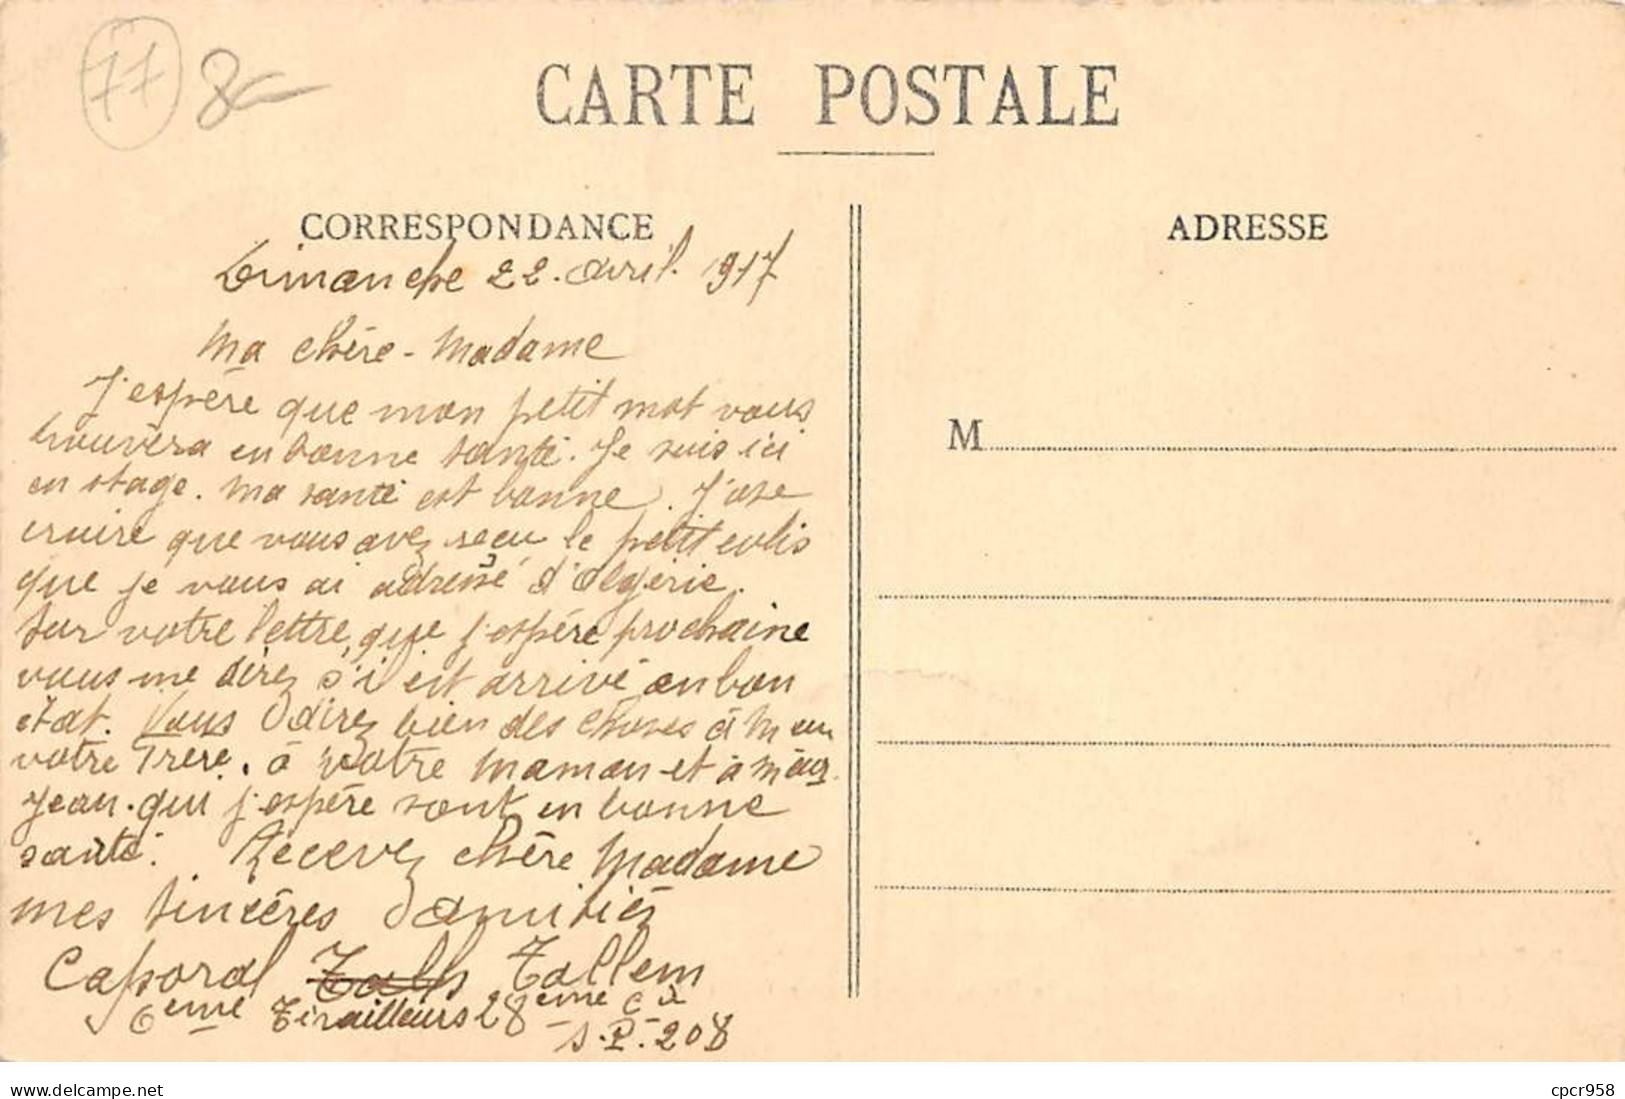 77 8
CARTE POSTALE
CORRESPONDANCE
Dimanche 22. avril. 1917
Ma chère - Madame
J'espère que mon petit mot vous
trouvèra en bonne santé. Je suis ici
en stage. Ma santé est bonne. J'ose
croire que vous avez reçu le petit colis
que je vous ai adressé d'Algérie.
Sur votre lettre, que j'espère prochaine
vous me direz s'i est arrivé en bon
état. Vous direz bien des choses à
votre Frere. à votre maman et à
Jean. qui j'espère sont en bonne
santé. Recevez chère Madame
mes sincéres d'amitiéz
Caporal Tallem
6ème Tirailleurs 28ème Cie
S.P. 208
ADRESSE
M
www.delcampe.net
cpcr958